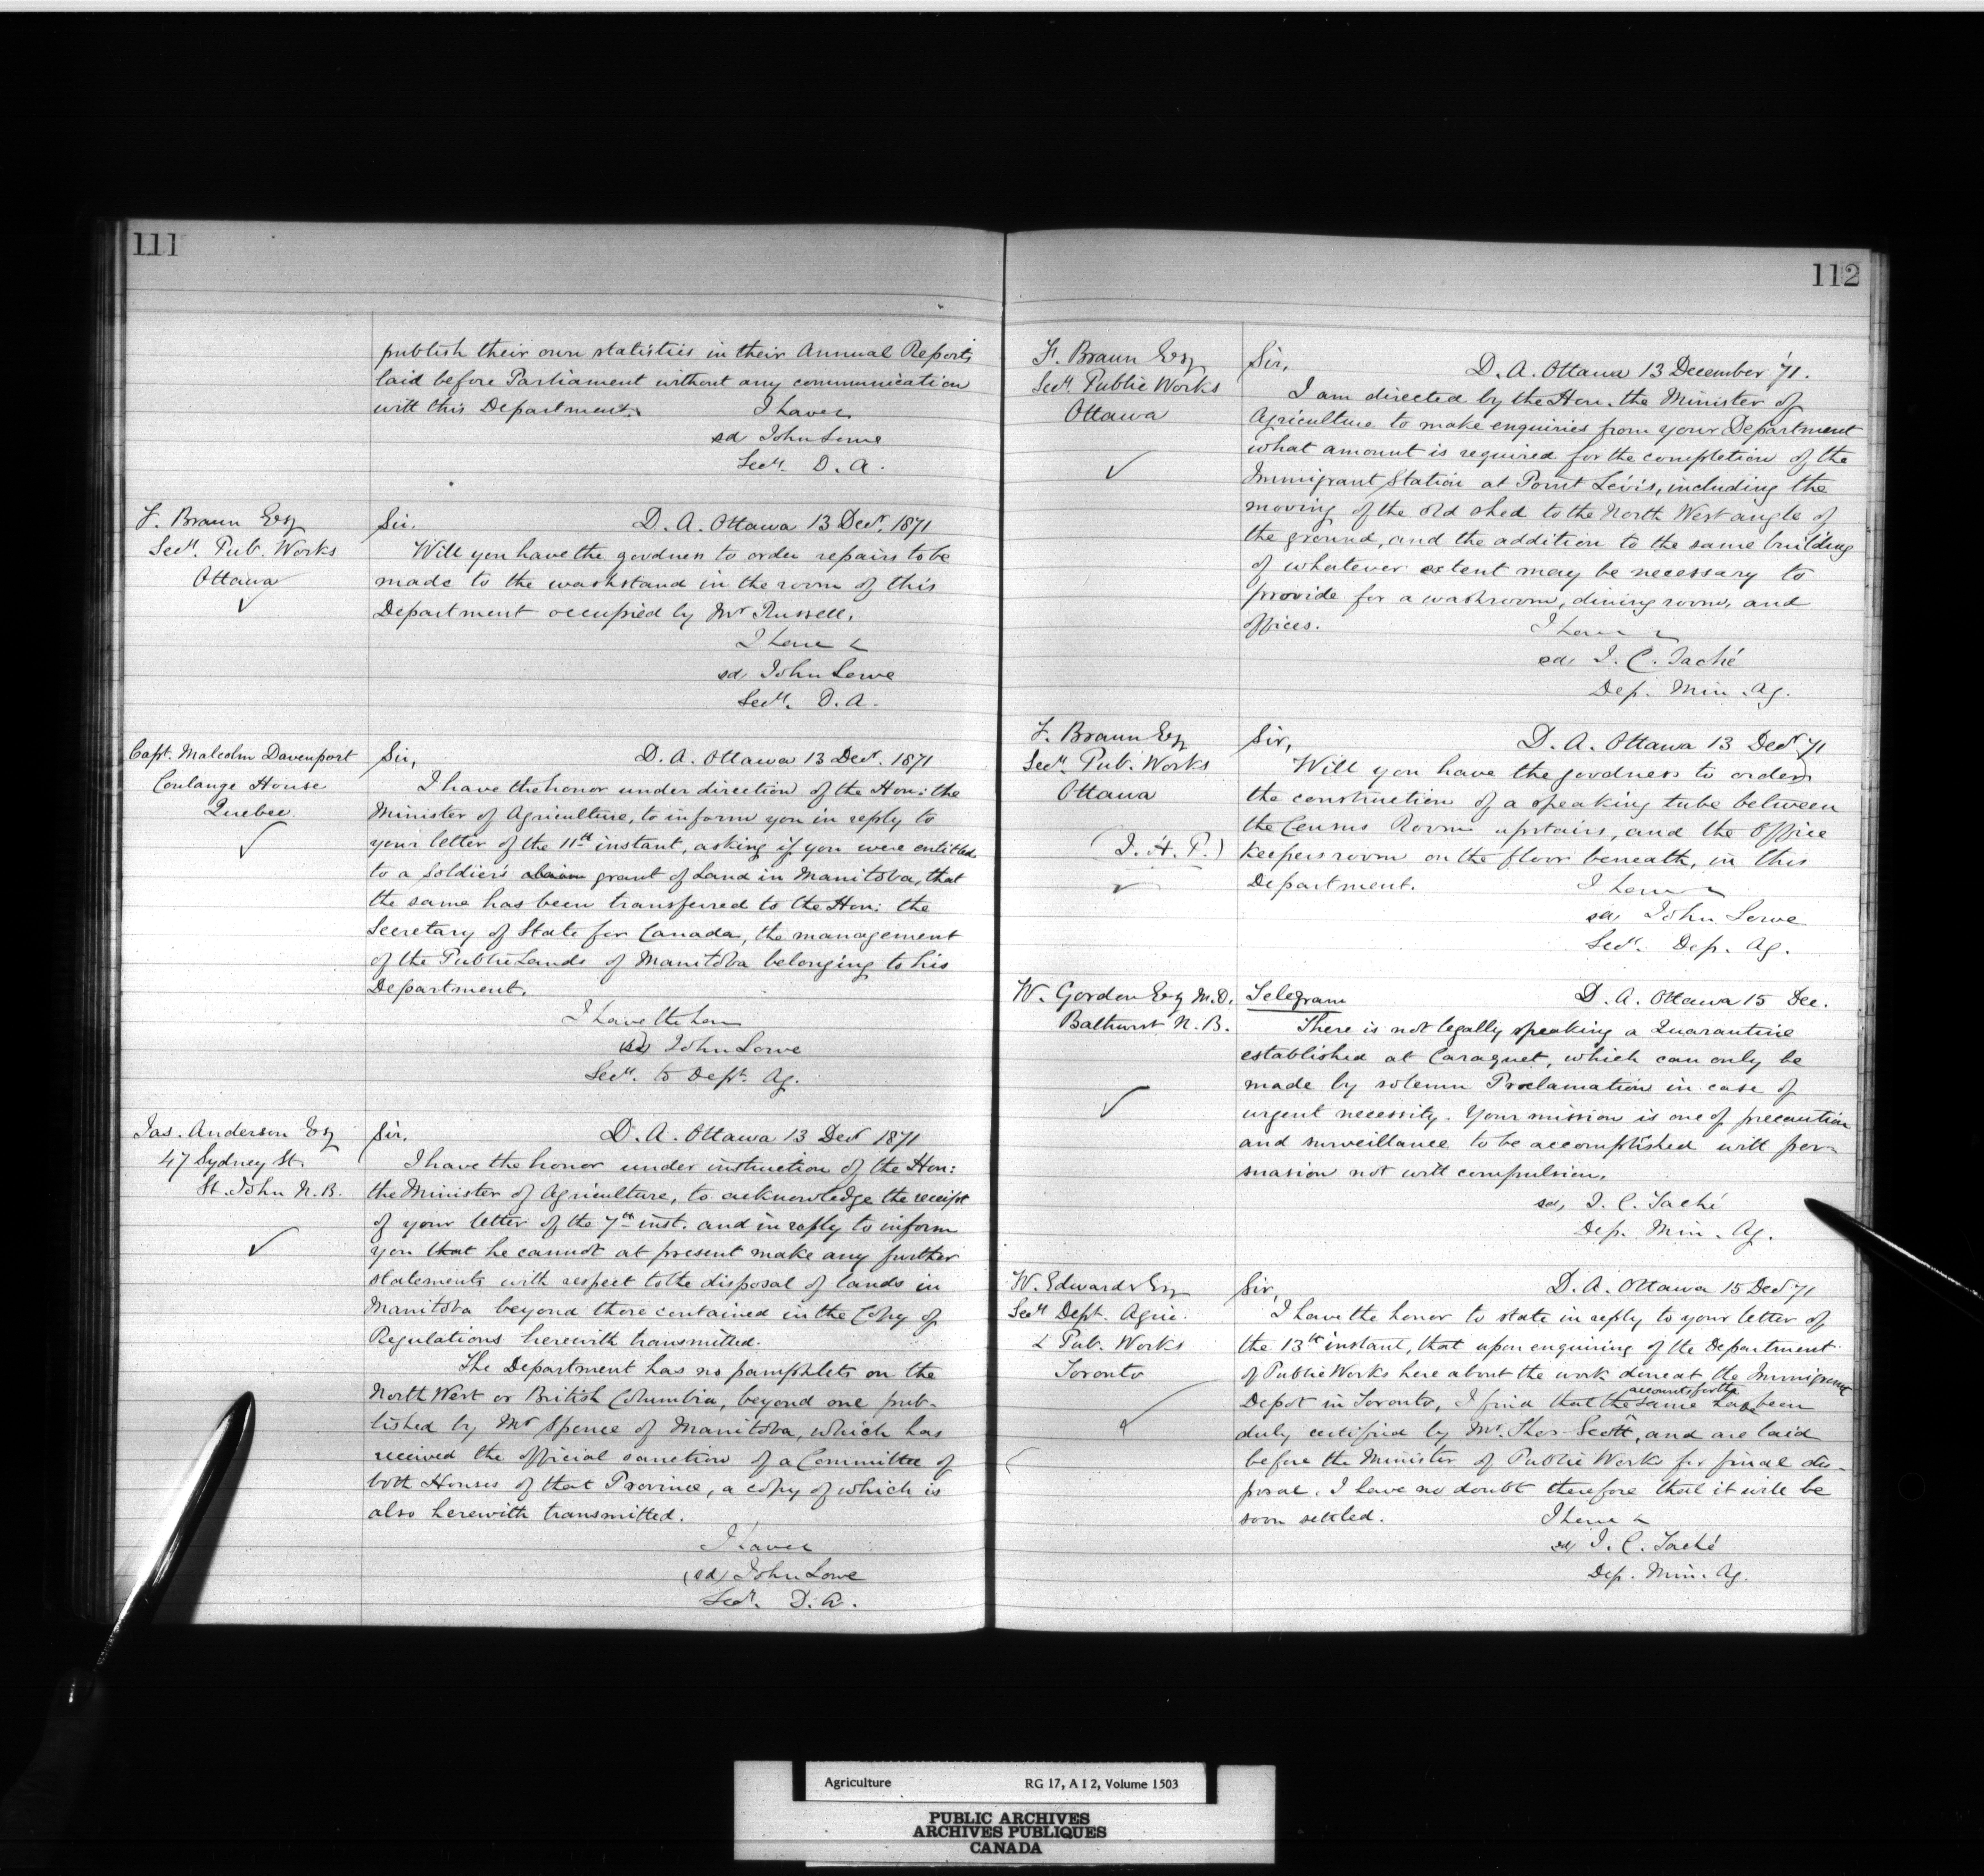 111
publish their own statistics in their Annual Reports
laid before Parliament without any communication
with this Department. I have &
sd John Lowe
Secy. D. A.
F. Braun Esq
Secy. Pub. Works
Ottawa
Sir. D. A. Ottawa 13 Decr. 1871
Will you have the goodness to order repairs to be
made to the washstand in the room of this
Department occupied by Mr Russell.
I have &
sd John Lowe
Secy. D. A.
Capt. Malcolm Davenport
Coulange House
Quebec.
Sir, D. A. Ottawa 13 Decr. 1871
I have the honor under direction of the Hon: the
Minister of Agriculture, to inform you in reply to
your letter of the 11th instant, asking if you were entitled
to a Soldier's claim grant of Land in Manitoba, that
the same has been transferred to the Hon: the
Secretary of State for Canada, the management
of the Public Lands of Manitoba belonging to his
Department.
I have the hon
(sd) John Lowe
Secy. to Dept. Ag.
Jas. Anderson Esq
47 Sydney St.
St. John N. B.
Sir, D. A. Ottawa 13 Decr 1871
I have the honor under instruction of the Hon:
the Minister of Agriculture, to acknowledge the receipt
of your letter of the 7th inst. and in reply to inform
you that he cannot at present make any further
statements with respect to the disposal of lands in
Manitoba beyond those contained in the Copy of
Regulations herewith transmitted.
The Department has no pamphlets on the
North West or British Columbia, beyond one pub-
lished by Mr Spence of Manitoba, which has
received the official sanction of a Committee of
both Houses of that Province, a copy of which is
also herewith transmitted.
I have &
(sd) John Lowe
Secy. D. A.
112
F. Braun Esq
Secy. Public Works
Ottawa
Sir, D. A. Ottawa 13 December '71.
I am directed by the Hon. the Minister of
Agriculture to make enquiries from your Department
what amount is required for the completion of the
Immigrant Station at Point Levis, including the
moving of the old shed to the North West angle of
the ground, and the addition to the same building
of whatever extent may be necessary to
provide for a washroom, dining room, and
offices. I have &
sd, J. C. Taché
Dep. Min. Ag.
F. Braun Esq
Secy. Pub. Works
Ottawa
(J. H. P.)
Sir, D. A. Ottawa 13 Decr 71
Will you have the goodness to order
the construction of a speaking tube between
the Census Room upstairs, and the Office
Keepers room on the floor beneath, in this
Department. I have &
sd, John Lowe
Secy. Dep. Ag.
W. Gordon Esq M.D.
Bathurst N. B.
Telegram D. A. Ottawa 15 Dec.
There is not legally speaking a Quarantine
established at Caraquet, which can only be
made by solemn Proclamation in case of
urgent necessity. Your mission is one of precaution
and surveillance to be accomplished with per-
suasion not with compulsion.
sd, J. C. Taché
Dep. Min. Ag.
W. Edwards Esq
Secy Dept. Agric.
& Pub. Works
Toronto
Sir, D. A. Ottawa 15 Decr 71
I have the honor to state in reply to your letter of
the 13th instant, that upon enquiring of the Department
of Public Works here about the work done at the Immigrant
Depot in Toronto, I find that the accounts for the same have been
duly certified by Mr. Thos Scott, and are laid
before the Minister of Public Works for final dis-
posal. I have no doubt therefore that it will be
soon settled. I have &
sd, J. C. Taché
Dep. Min. Ag.
Agriculture RG 17, A I 2, Volume 1503
PUBLIC ARCHIVES
ARCHIVES PUBLIQUES
CANADA